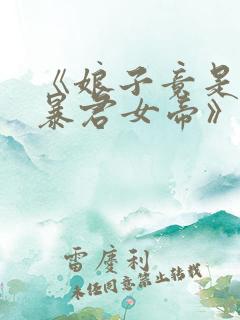 《娘子竟是
暴君女帝》
雷慶利
未经同意禁止转载